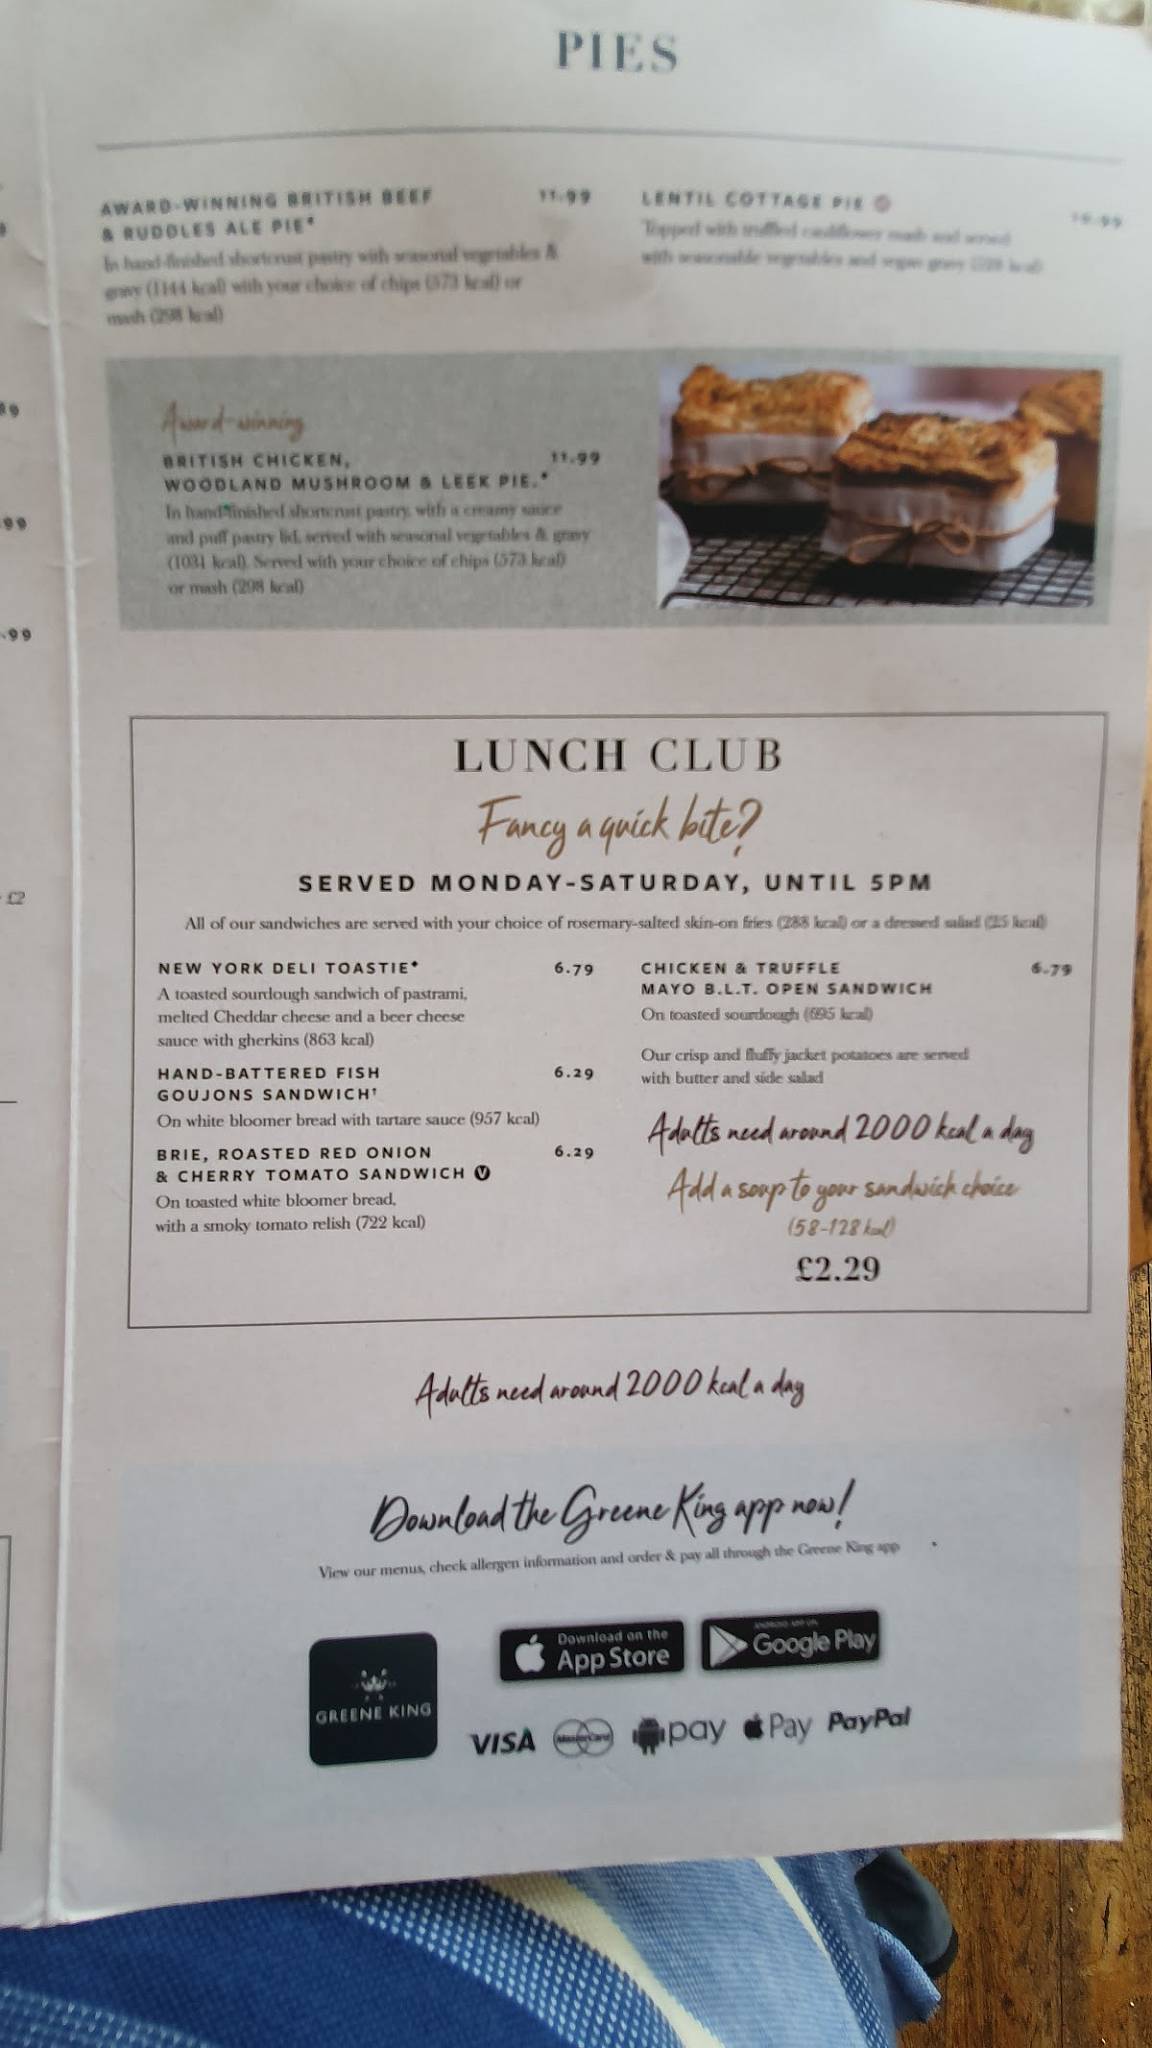 PIES
AWARD-WINNING BRITISH BEEF 11.99
& RUDDLES ALE PIE*
In hand-finished shortcrust pastry with seasonal vegetables &
gravy (1144 kcal) with your choice of chips (573 kcal) or
mash (298 kcal)
LENTIL COTTAGE PIE
Topped with truffled cauliflower mash and served
with seasonable vegetables and vegan gravy
Award-winning
BRITISH CHICKEN, 11.99
WOODLAND MUSHROOM & LEEK PIE.*
In hand-finished shortcrust pastry, with a creamy sauce
and puff pastry lid, served with seasonal vegetables & gravy
(1031 kcal). Served with your choice of chips (573 kcal)
or mash (298 kcal)
LUNCH CLUB
Fancy a quick bite?
SERVED MONDAY-SATURDAY, UNTIL 5PM
All of our sandwiches are served with your choice of rosemary-salted skin-on fries (288 kcal) or a dressed salad (25 kcal)
NEW YORK DELI TOASTIE* 6.79
A toasted sourdough sandwich of pastrami,
melted Cheddar cheese and a beer cheese
sauce with gherkins (863 kcal)
HAND-BATTERED FISH 6.29
GOUJONS SANDWICH†
On white bloomer bread with tartare sauce (957 kcal)
BRIE, ROASTED RED ONION 6.29
& CHERRY TOMATO SANDWICH V
On toasted white bloomer bread,
with a smoky tomato relish (722 kcal)
CHICKEN & TRUFFLE 6.79
MAYO B.L.T. OPEN SANDWICH
On toasted sourdough (695 kcal)
Our crisp and fluffy jacket potatoes are served
with butter and side salad
Adults need around 2000 kcal a day
Add a soup to your sandwich choice
(58-128 kcal)
£2.29
Adults need around 2000 kcal a day
Download the Greene King app now!
View our menus, check allergen information and order & pay all through the Greene King app
GREENE KING
Download on the
App Store
ANDROID APP ON
Google Play
VISA MasterCard pay Pay PayPal
99
.99
£2